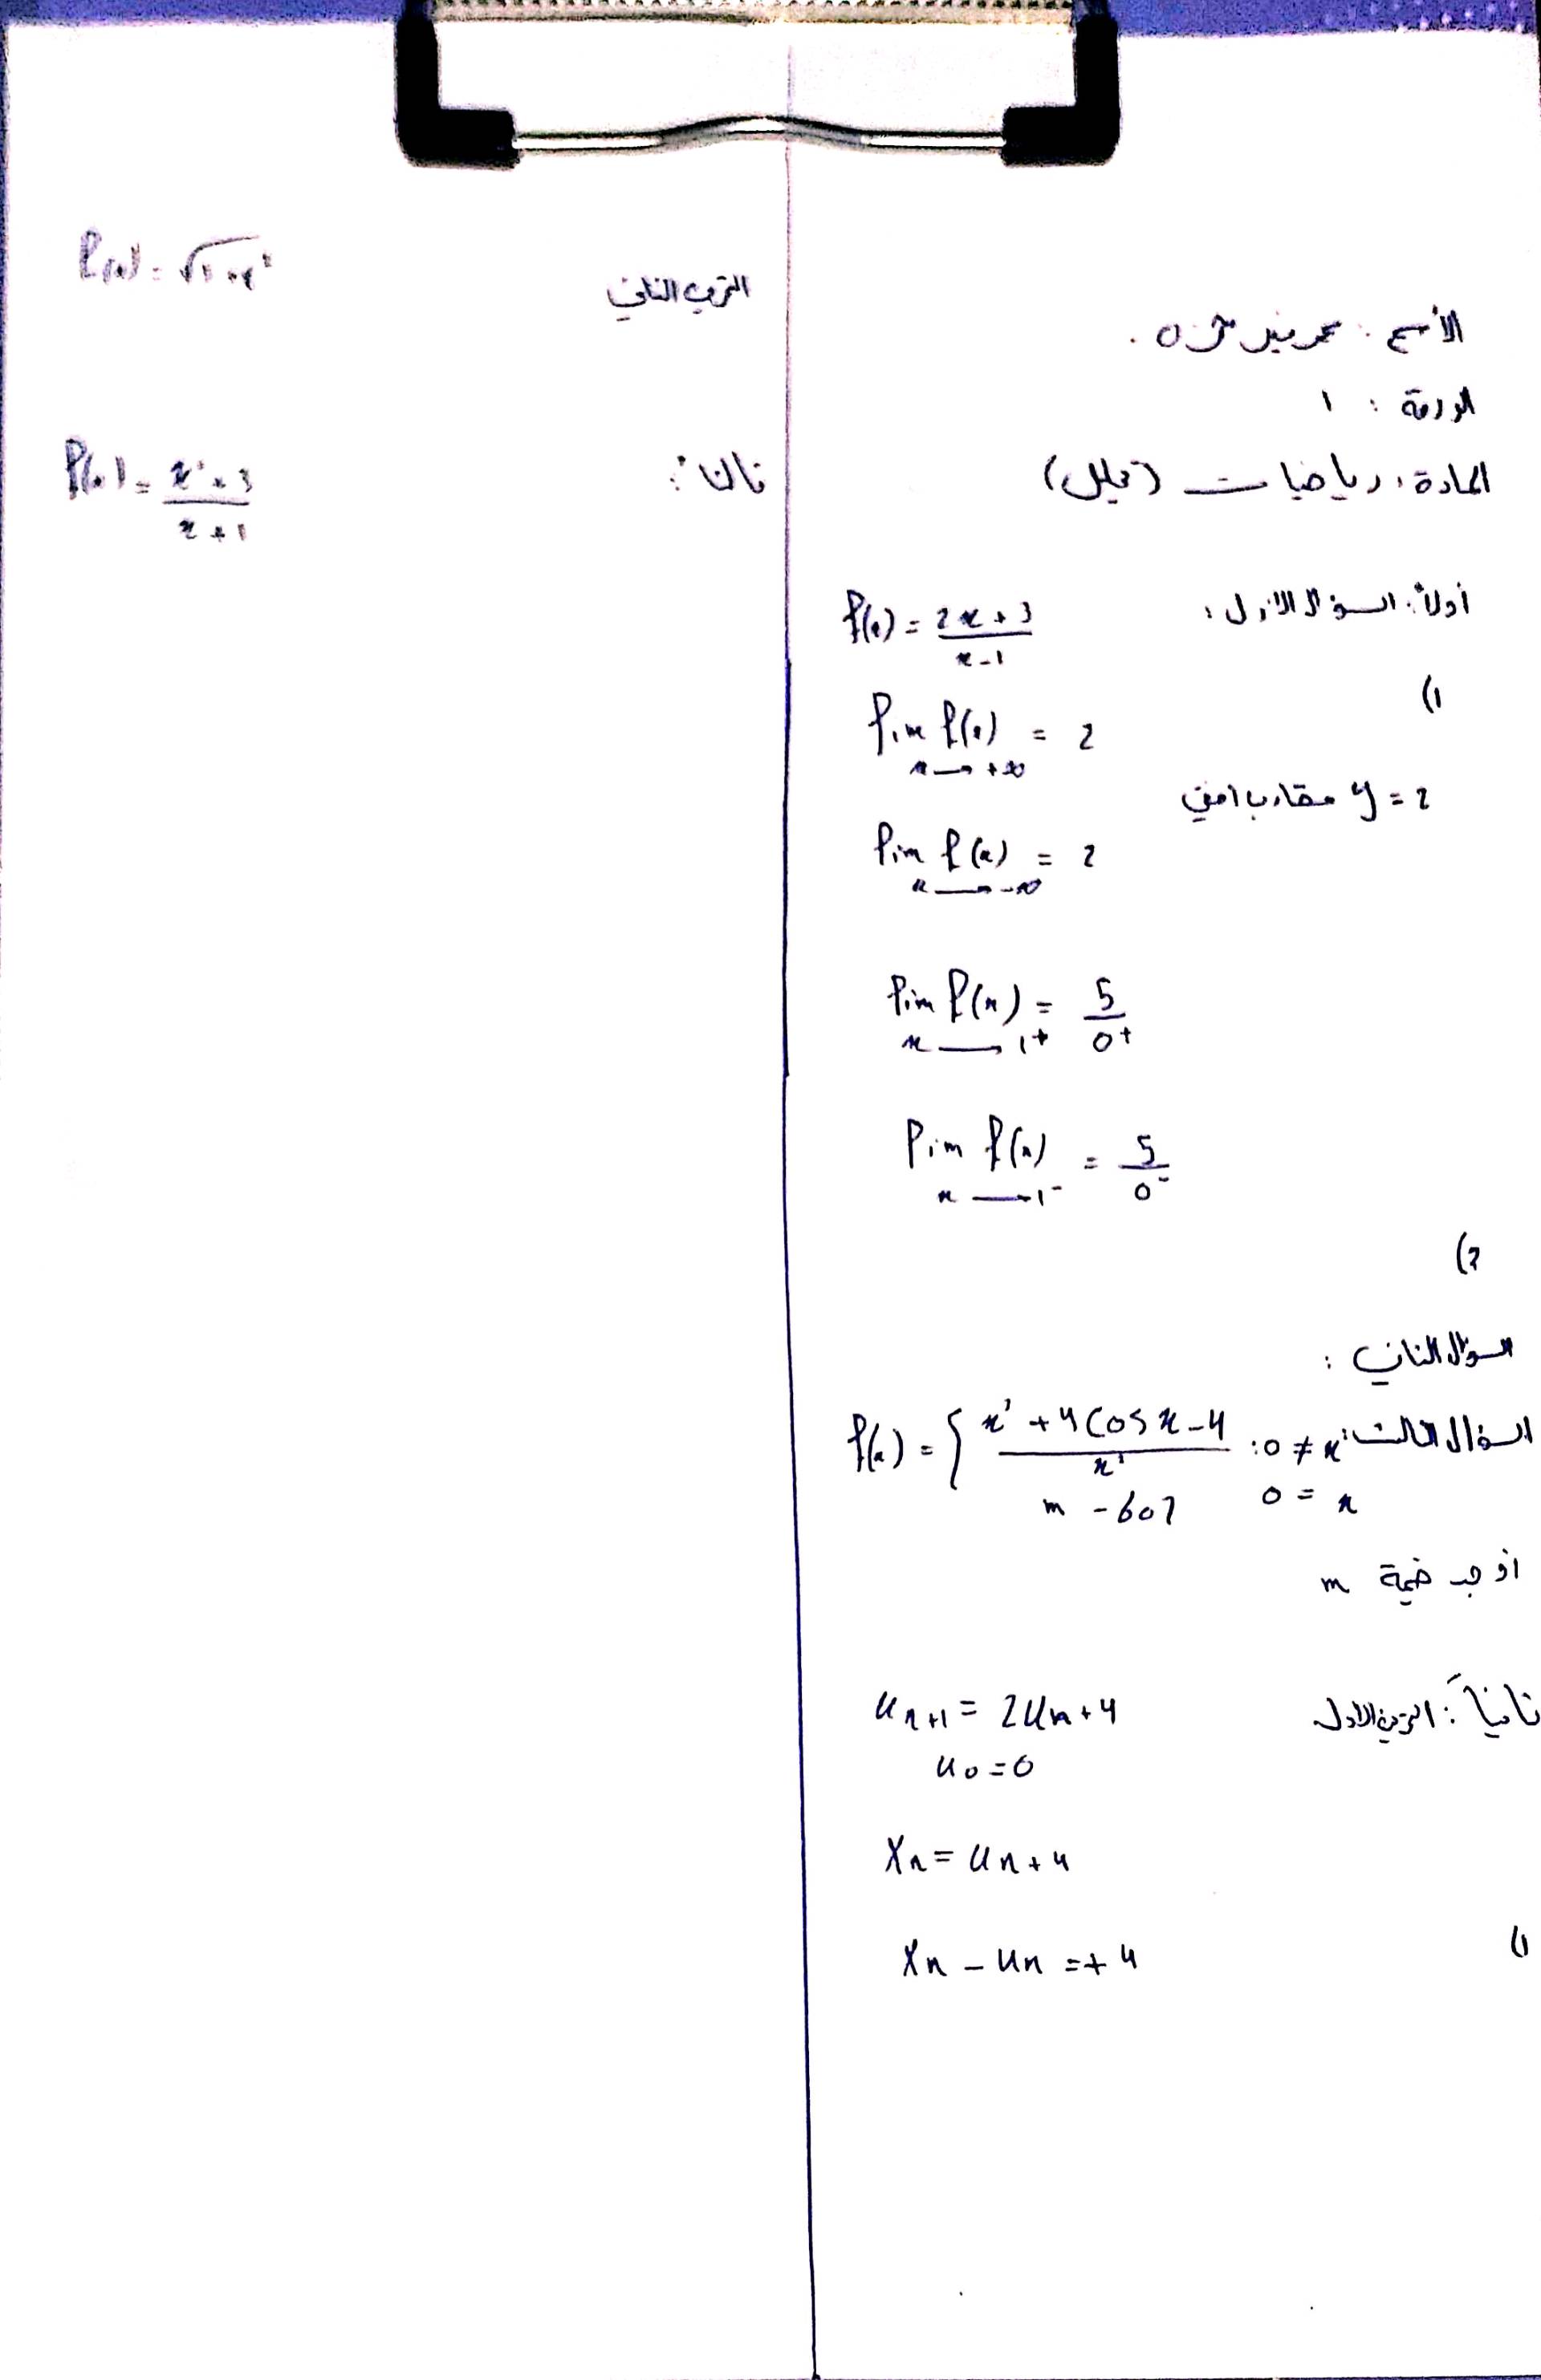 الأسم : محمد منير حمزه .
الورقة : ١
المادة : رياضيات (تحليل)
أولاً : السؤال الأول : f(x) = \frac{2x+3}{x-1}
(1
lim f(x) = 2
x → +∞
y = 2 مقارب افقي
lim f(x) = 2
x → -∞
lim f(x) = \frac{5}{0+}
x → 1+
lim f(x) = \frac{5}{0-}
x → 1-
(2
السؤال الثاني :
السؤال الثالث : f(x) = { \frac{x² + 4 cos x - 4}{x²} : 0 ≠ x
m - 607 0 = x
اوجد قيمة m
ثانياً : التمرين الاول u_{n+1} = 2u_n + 4
u_0 = 0
x_n = u_n + 4
(1 x_n - u_n = +4
التمرين الثاني f(x) = \sqrt{1+x²}
ثالثاً : f(x) = \frac{x²+3}{x+1}